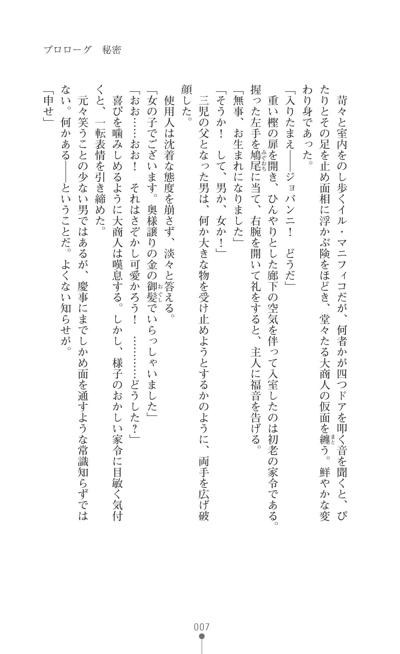 プロローグ　秘密
　苛々と室内をのし歩くイル・マニフィコだが、何者かが四つドアを叩く音を聞くと、ぴ
たりとその足を止め面相に浮かぶ険をほどき、堂々たる大商人の仮面を纏う。鮮やかな変
わり身であった。
「入りたまえ――ジョバンニ！　どうだ」
　重い樫の扉を開き、ひんやりとした廊下の空気を伴って入室したのは初老の家令である。
握った左手を鳩尾に当て、右腕を開いて礼をすると、主人に福音を告げる。
「無事、お生まれになりました」
「そうか！　して、男か、女か！」
　三児の父となった男は、何か大きな物を受け止めようとするかのように、両手を広げ破
顔した。
　使用人は沈着な態度を崩さず、淡々と答える。
「女の子でございます。奥様譲りの金の御髪でいらっしゃいました」
「おお……おお！　それはさぞかし可愛かろう！　…………どうした？」
　喜びを噛みしめるように大商人は嘆息する。しかし、様子のおかしい家令に目敏く気付
くと、一転表情を引き締めた。
　元々笑うことの少ない男ではあるが、慶事にまでしかめ面を通すような常識知らずでは
ない。何かある――ということだ。よくない知らせが。
「申せ」
007